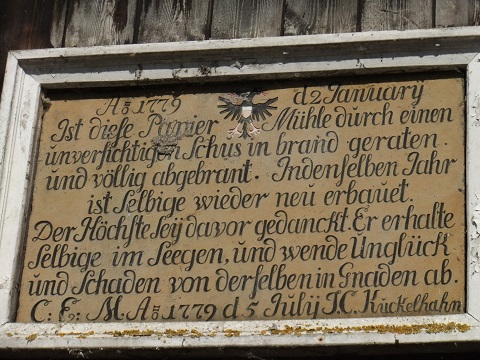 Aō 1779 d 2 January
Ist diese Papier Mühle durch einen
unversichtigen Schus in brand geraten.
und völlig abgebrant. Indenselben Jahr
ist Selbige wieder neu erbauet.
Der Höchste seij davor gedanckt. Er erhalte
Selbige im Seegen, und wende Unglück
und Schaden von derselben in Gnaden ab.
C. E. M. Aō 1779 d 5 Julij J. C. Kuckelhahn